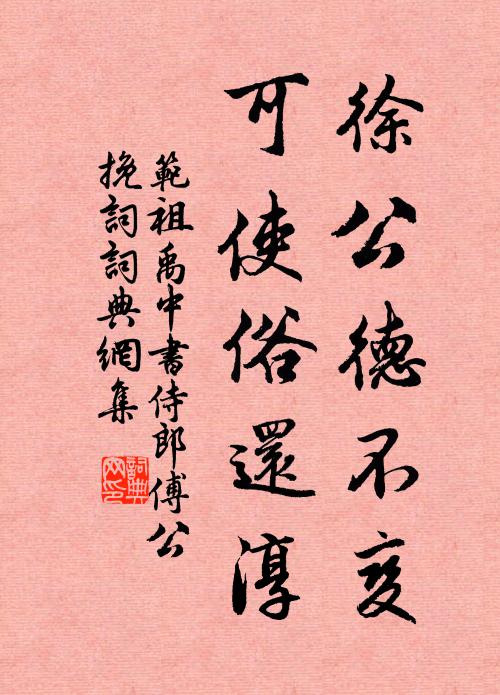 徐公德不变
可使俗還淳
範祖禹中書侍郎傅公
挽詞詞典網集
詞典网印